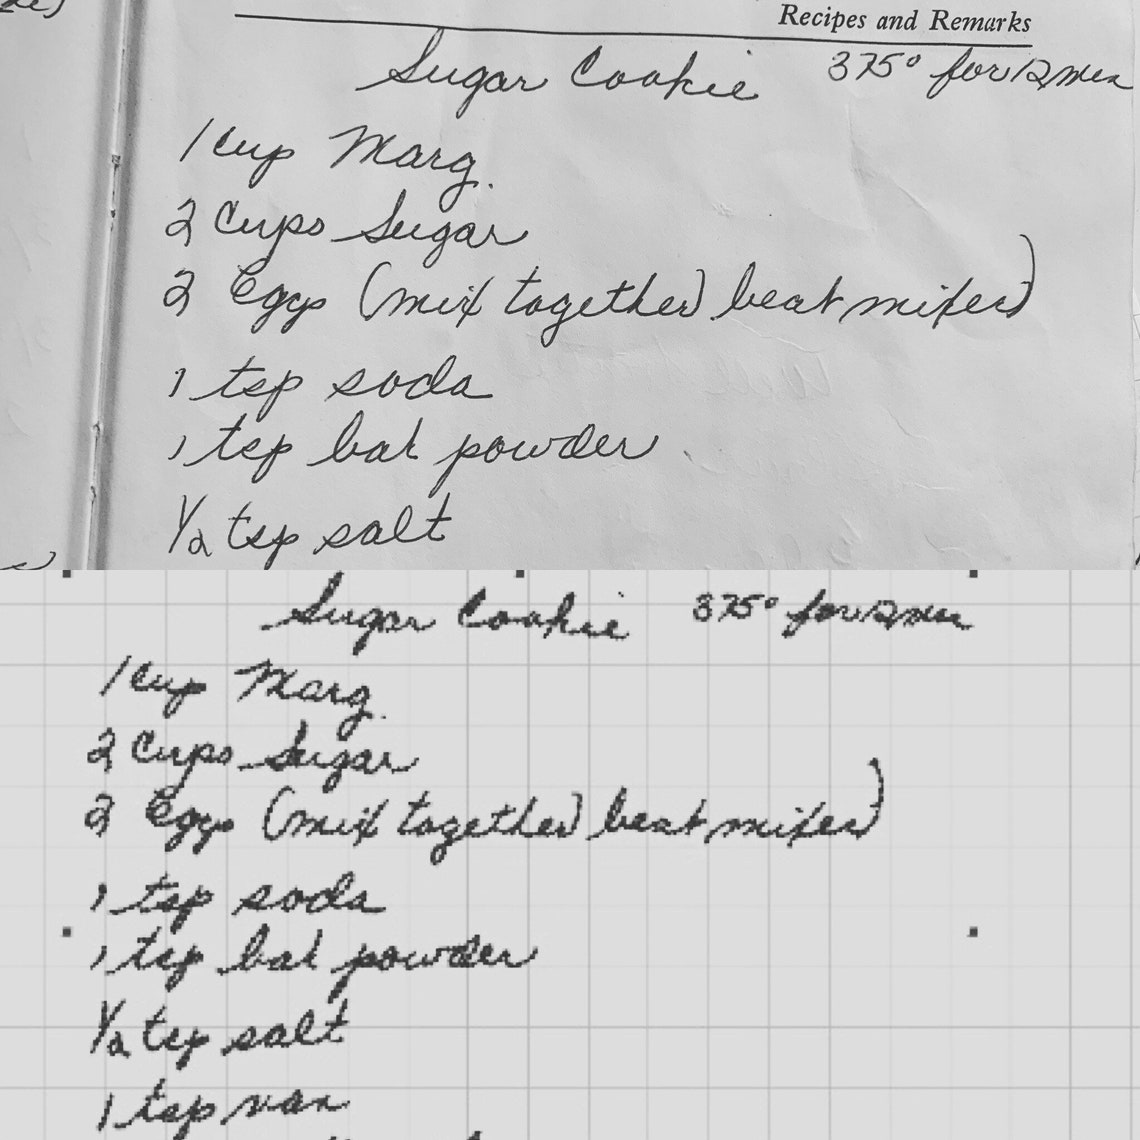 Recipes and Remarks
Sugar Cookie 375° for 12 min
1 Cup Marg.
2 Cups Sugar
2 Eggs (mix together) beat mixer)
1 tsp soda
1 tsp bak powder
1/2 tsp salt
Sugar Cookie 375° for 12 min
1 Cup Marg.
2 Cups Sugar
2 Eggs (mix together) beat mixer)
1 tsp soda
1 tsp bak powder
1/2 tsp salt
1 tsp van